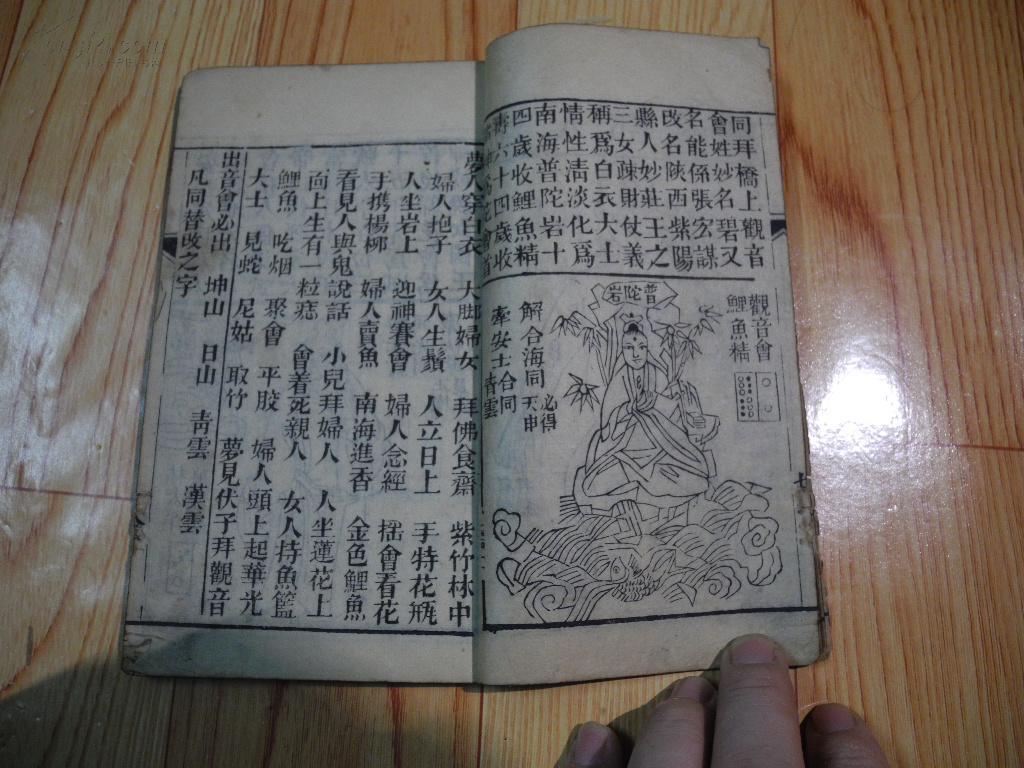 同拜橋上觀音
會姓妙名碧又
名能係張宏謀
改名陝西紫陽
縣人妙莊王之
三女疎財仗義
稱為白衣大士
情性淸淡化為
南海普陀岩十
四歲收鯉魚精
六十四歲收
觀音會
鯉魚精
普陀岩
解合海同天申必得
牽安士合同青雲
夢人穿白衣 大脚婦女 拜佛食齋 紫竹林中
婦人抱子 女人生鬚 人立日上 手特花瓶
人坐岩上 迎神賽會 婦人念經 摇會看花
手携楊柳 婦人賣魚 南海進香 金色鯉魚
看見人與鬼說話 小兒拜婦人 人坐蓮花上
面上生有一粒痣 會着死親人 女人持魚籃
鯉魚 吃烟 聚會 平胶 婦人頭上起華光
大士 見蛇 尼姑 取竹 夢見伏子拜觀音
出音會必出 坤山 日山 靑雲 漢雲
凡同替改之字